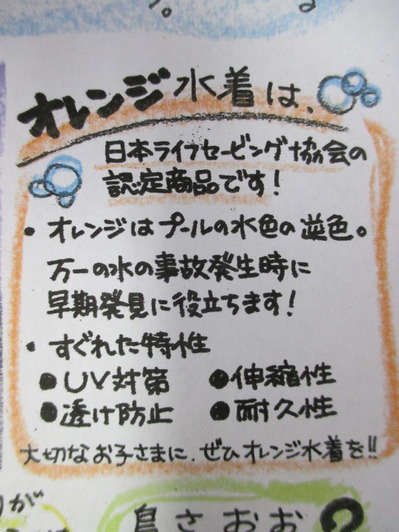 オレンジ水着は、
日本ライフセービング協会の
認定商品です!
・オレンジはプールの水色の逆色。
万一の水の事故発生時に
早期発見に役立ちます!
・すぐれた特性
●UV対策 ●伸縮性
●透け防止 ●耐久性
大切なお子さまに、ぜひオレンジ水着を!!
りが
鳥さおお